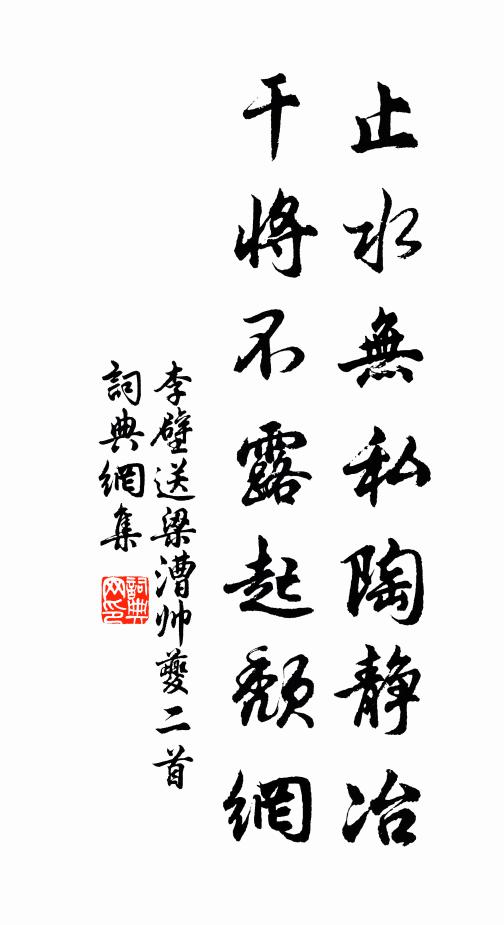 止水無私陶靜冶
干將不露起頽網
李壁送梁漕帅夔二首
詞典網集
詞典網印